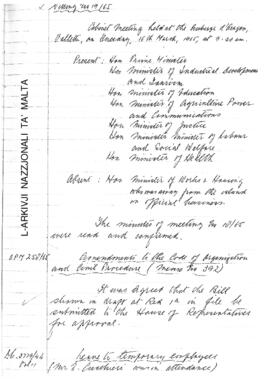 Meeting No 19/65
Cabinet Meeting held at the Auberge d'Aragon,
Valletta, on Tuesday, 16th March, 1965 at 9.30 am.
Present: Hon Prime Minister
Hon Minister of Industrial Development
and Tourism
Hon Minister of Education
Hon Minister of Agriculture Power
and Communications
Hon Minister of Justice
Hon Minister of Labour
and Social Welfare
Hon Minister of Health
Absent: Hon Minister of Works & Housing
who was away from the island
on official business.
The minutes of meeting No 18/65
were read and confirmed.
OPM 258/65
Amendments to the Code of Organisation
and Civil Procedure (Memo No 392)
It was agreed that the Bill
shown in draft at Red in file be
submitted to the House of Representatives
for approval.
Leave to temporary employees
(Mr. was in attendance)
L-ARKIVJI NAZZJONALI TA' MALTA